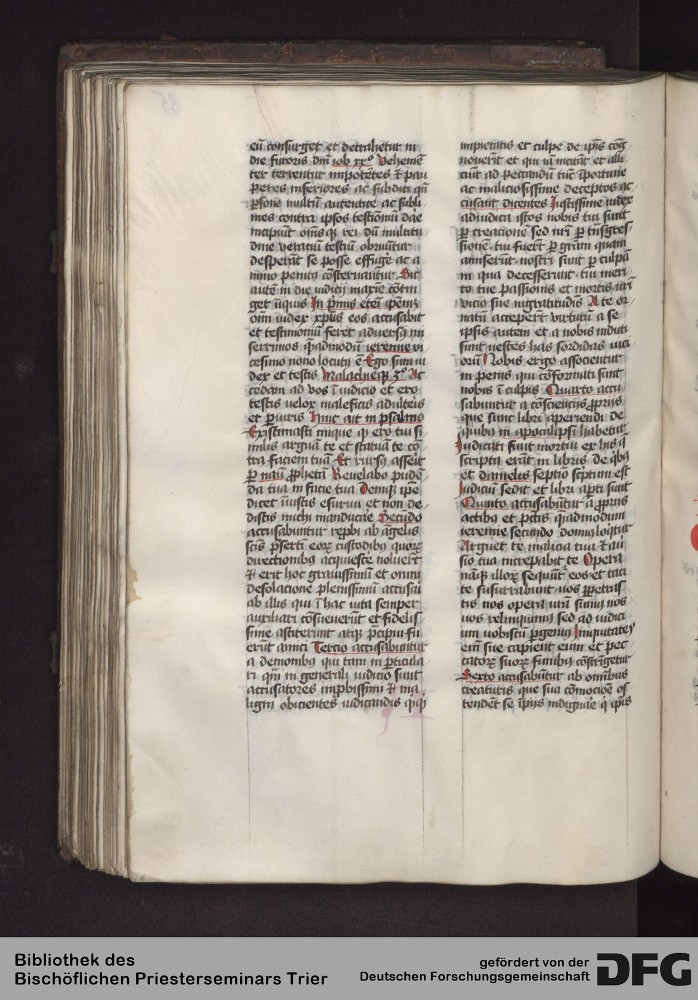 eū consurget et detrahetur in
die furoris dn̄i iob xxº Vehemē
ter terrentur impotētes ⁊ pau
peres inferiores ac subditi qn̄
ꝑsone multū autentice ac subli
mes contra ipsos testimōiū dāe
mapiūt om̄sqꝫ rei dū multitu
dine veraciū testiū obruūtur
desperāt se posse effugē ac a
nimo penitꝰ cōsternātur Sic
autē in die iudicij maxīe cōtin
get iīquis In pͥmis eten̄ ipemꝫ
oīm iudex xp̄us eos accusabit
et testimoniū feret adversꝰ mi
serrimos quādmodū ieremie vi
cesimo nono locutꝰ ē Ego sum iu
dex et testis Malachieqꝫ 3º Ac
cedam ad vos ī iudicio et ero
testis velox maleficis adulteris
et ꝑiuris Hinc ait in psalmo
Existimasti inique qꝫ ero tui si
milis arguā te et statuā te cō
tra faciem tuā Et rursꝰ asseīt
ꝑ naū ꝓphetā Revelabo pudē
da tua in facie tua Demqꝫ ipē
dicet īiustis esurivi et non de
distis michi manducāe Secūdo
accusabuntur rep̄bi ab āgelis
scīs p̄serti eoꝝ custodibꝰ quoꝝ
directionibꝰ acquiesce nolueīt
⁊ erit hoc gravissimū et omni
desolacione plenissimū accusāi
ab illis qui ī hac vita semper
auxiliari cōsueverūt et fidelis
sime astiterunt atqꝫ p̄cipui fu
erūt amici Tercio accusabuntur
a demonibꝰ qui tam in ꝑticula
ri qm̄ in generali iudicio sunt
accusatores imp̄bissimi ⁊ ma
ligni obicientes iudicandis qͥsqꝫ
impietatis et culpe de ip̄is coḡ
noverīt et qui iā incitāt et alli
ciūt ad peccandū tūc īportune
ac maliciosissime deceptos ac
cusant dicentes Iustissime iudex
adiudica istos nobis tui sunt
ꝑ creacionē sed nr̄i ꝑ trāsgres
sionē tui fuerīt ꝑ grām quam
amiserūt nostri sunt ꝑ culpā
in qua decesserunt tui meri
to tue passionis et mortis nr̄i
vicio sue īngratitudīis A te or
natū acceperīt virtutū a se
ipsis autem et a nobis induti
sunt vestēs has sordidas vici
orū Nobis ergo associentur
in penis qui cōformati sunt
nobis ī culpis Quarto accu
sabuntur a cōsciencijs ꝓprijs
que sunt libri aperiendi de
quibꝰ in apocalipsi habetur
Iudicati sunt mortui ex his q̄
scripta erāt in libris de qͥbꝰ
et danielis septīo scriptum est
Iudiciū sedit et libri apti sunt
Quinto accusabūtur a ꝓprijs
actibꝰ et pctīs quādmodum
ieremie secūdo domīꝰ loqͥtur
Arguet te malicia tua ⁊ av̄
sio tua increpabit te Opera
nāqꝫ illoꝝ sequūt̄ eos et taci
te susurrabunt vos ꝑpetras
tis nos opera vr̄ā sumꝰ nos
vos relinquimꝰ sed ad iudici
um vobiscū ꝑgemꝰ Iniquitates
em̄ sue capient eum et pec
catoꝝ suoꝝ funibꝰ cōstringetur
Sexto accusabūtur ab omībus
creaturis que sua cōmocione os
tendent se īpijs indignāe qꝫ ip̄is
Bibliothek des
Bischöflichen Priesterseminars Trier
gefördert von der
Deutschen Forschungsgemeinschaft
DFG